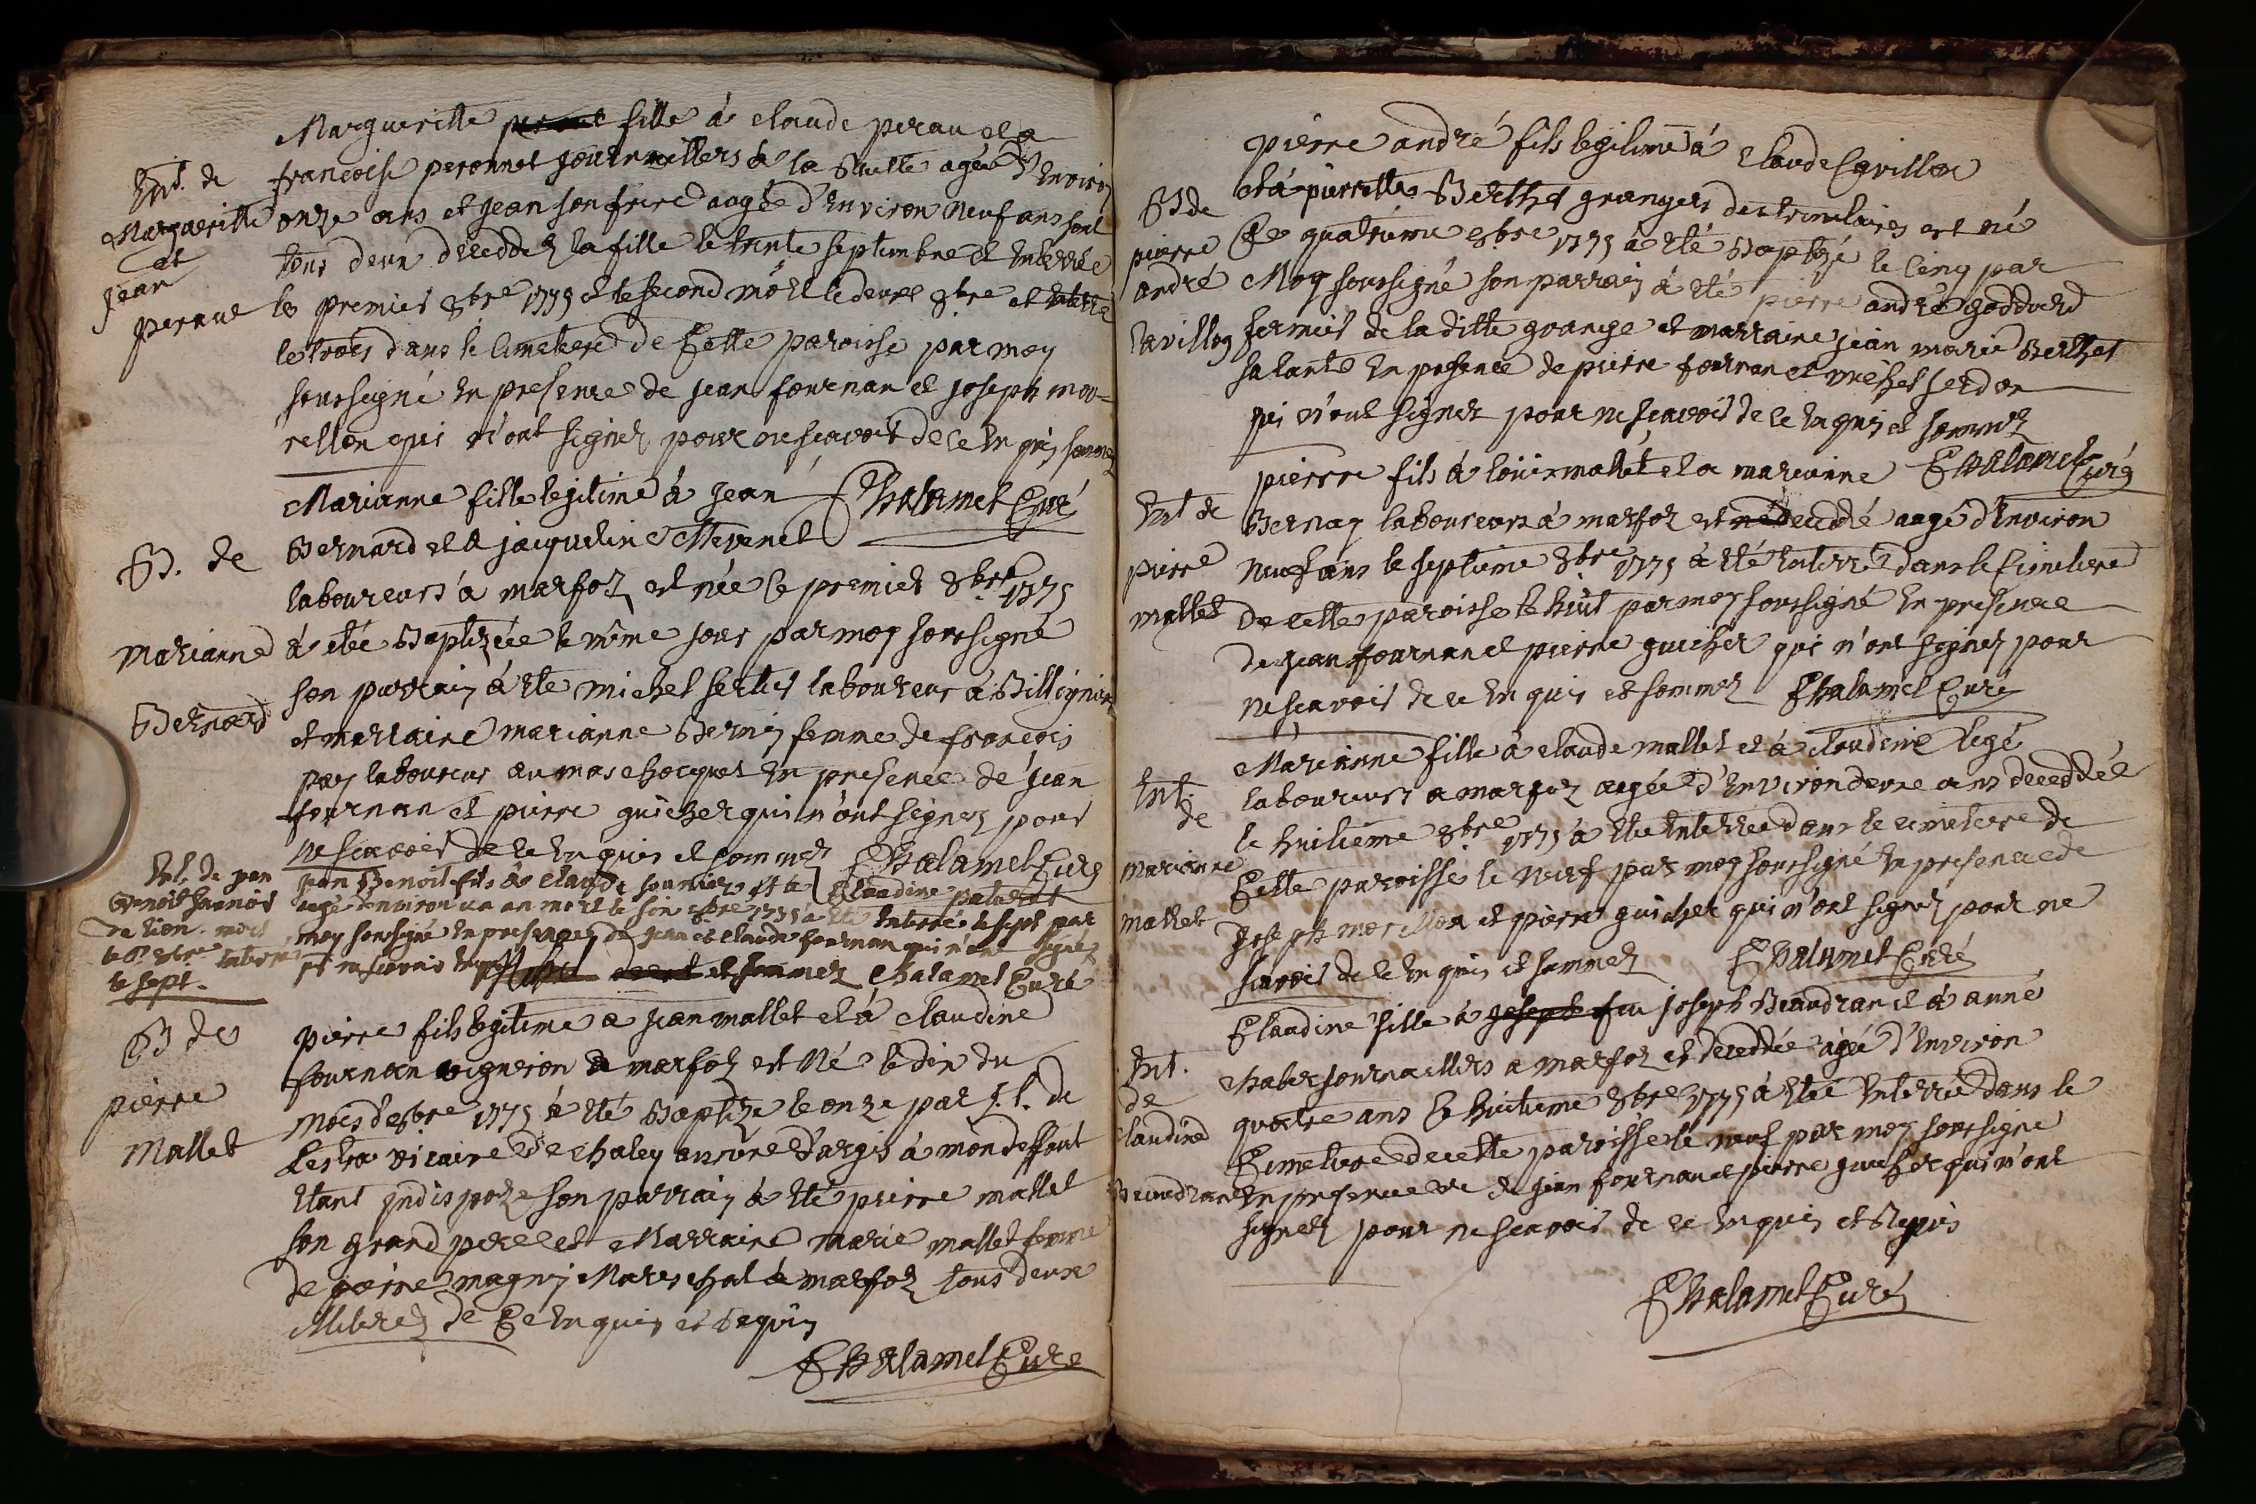 Margueritte fille à claude peraud et a
Ent. de
Margueritte
et
jean
peraud
francoise peronnet journailliers à la agée d'environ
onze ans et jean son frere aagé d'Environ neuf ans sont
tous deux deceddez la fille le trente septembre et Enterrée
le premier 8bre 1775 et le second mort le deuxe 8bre et Enterré
le trois dans le cimetiere de Cette paroisse par moy
soussigné En presence de jean fournan et joseph mor=
rellon qui n'ont signez pour ne scavoir de ce En quis sommez
Chalamel Curé
B. de
marianne
Bernard
Marianne fille legitime à jean
Bernard et a jacqueline
laboureurs à marfoz est née le premier 8bre 1775
à eté Baptizée le même jour par moy soussigné
son parrain à eté michel laboureur à Billignieu
et marraine marianne Bernin femme de francois
pay laboureur au mas chocquet En presence de jean
fournan et pierre guicher qui n'ont signez pour
ne scavoir de ce En quis et sommez Chalamel Curé
Ent. de jean
Benoit
de lion. mort
le 6e 8bre Enterré
le sept.
jean Benoit fils à Claude et a Claudine
agé d'environ un an mort le six 8bre 1775 à eté Enterré le sept par
moy soussigné En presence de jean et claude fournan qui n'ont signez
pr ne scavoir et sommez Chalamel Curé
B de
pierre
Mallet
pierre fils legitime a jean mallet et à Claudine
fournan vigneron a marfoz est Né le dix du
mois d'8bre 1775 à eté Baptizé le onze par S.r. de
Lestra vicaire de chaley annexe d'argis à mon deffaut
Etant jndispozé son parrain à eté pierre mallet
son grand pere et Marraine marie mallet femme
de pierre magnin Mareschal à marfoz tous deux
de Ce En quis et Requis
Chalamel Curé
B de
pierre
andré
Cavillon
pierre andré fils legitime à Claude Cavillon
et à pierrette Berthet grangers des trinitaires est né
Le quatrieme 8bre 1775 à eté Baptizé le cinq par
Moy soussigné son parrain à eté pierre andré goddard
fermier de la ditte grange et marraine jean marie Berthet
sa tante En presence de pierre fournan et michel serdon
qui n'ont signez pour ne scavoir de ce Enquis et sommez
Chalamel Curé
Ent de
pierre
mallet
pierre fils à loüis mallet et a marianne
Bernay laboureurs à marfoz est deceddé aagé d'Environ
neuf ans le septieme 8bre 1775 à eté Enterré dans le Cimetiere
De cette paroisse le huit par moy soussigné En presence
de jean fournan et pierre guicher qui n'ont signez pour
ne scavoir de ce En quis et sommez Chalamel Curé
Ent.
de
marianne
mallet
Marianne fille à claude mallet et à claudine legé
laboureurs a marfoz aagée d'Environ deux ans deceddée
le huitieme 8bre 1775 a eté Enterrée dans le cimetiere de
Cette paroisse le neuf par moy soussigné En presence de
Joseph morellon et pierre guicher qui n'ont signez pour ne
scavoir de ce En quis et sommez Chalamel Curé
Ent.
de
Claudine
Beaudran
Claudine fille à joseph feu joseph Beaudran et à anne
chaber journailliers a marfoz est deceddée agée d'Environ
quatre ans Le huitieme 8bre 1775 à eté Enterrée dans le
Cimetiere de cette paroisse le neuf par moy soussigné
En presence de jean fournan et pierre guicher qui n'ont
signez pour ne scavoir de ce En quis et Requis
Chalamel Curé